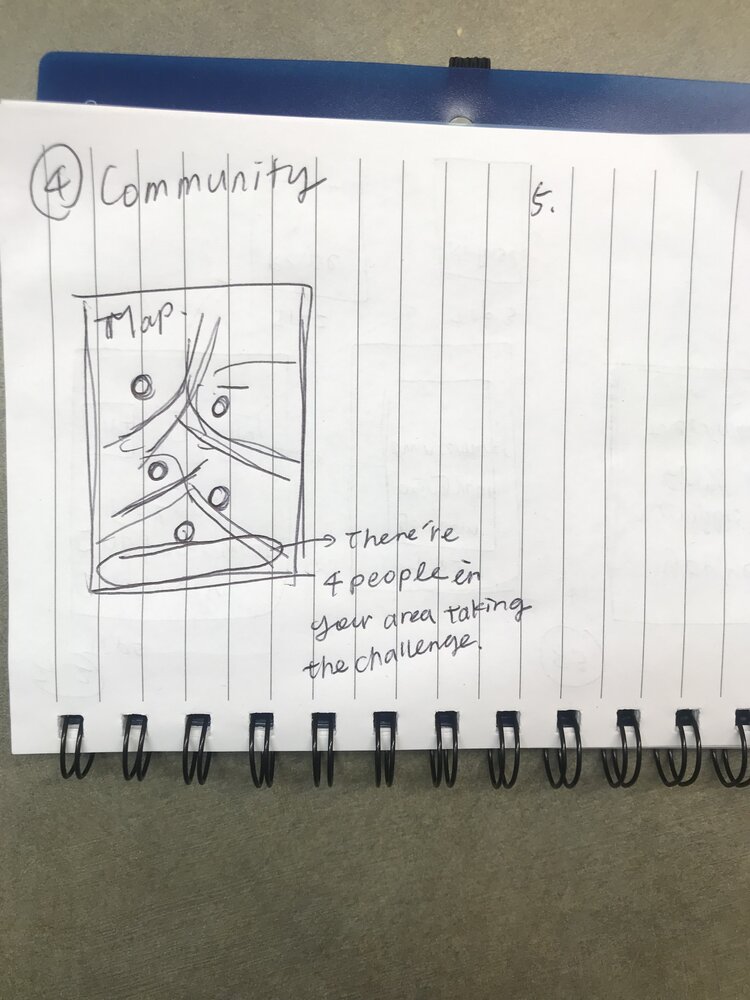 4 Community
5.
Map.
There're
4 people in
your area taking
the challenge.